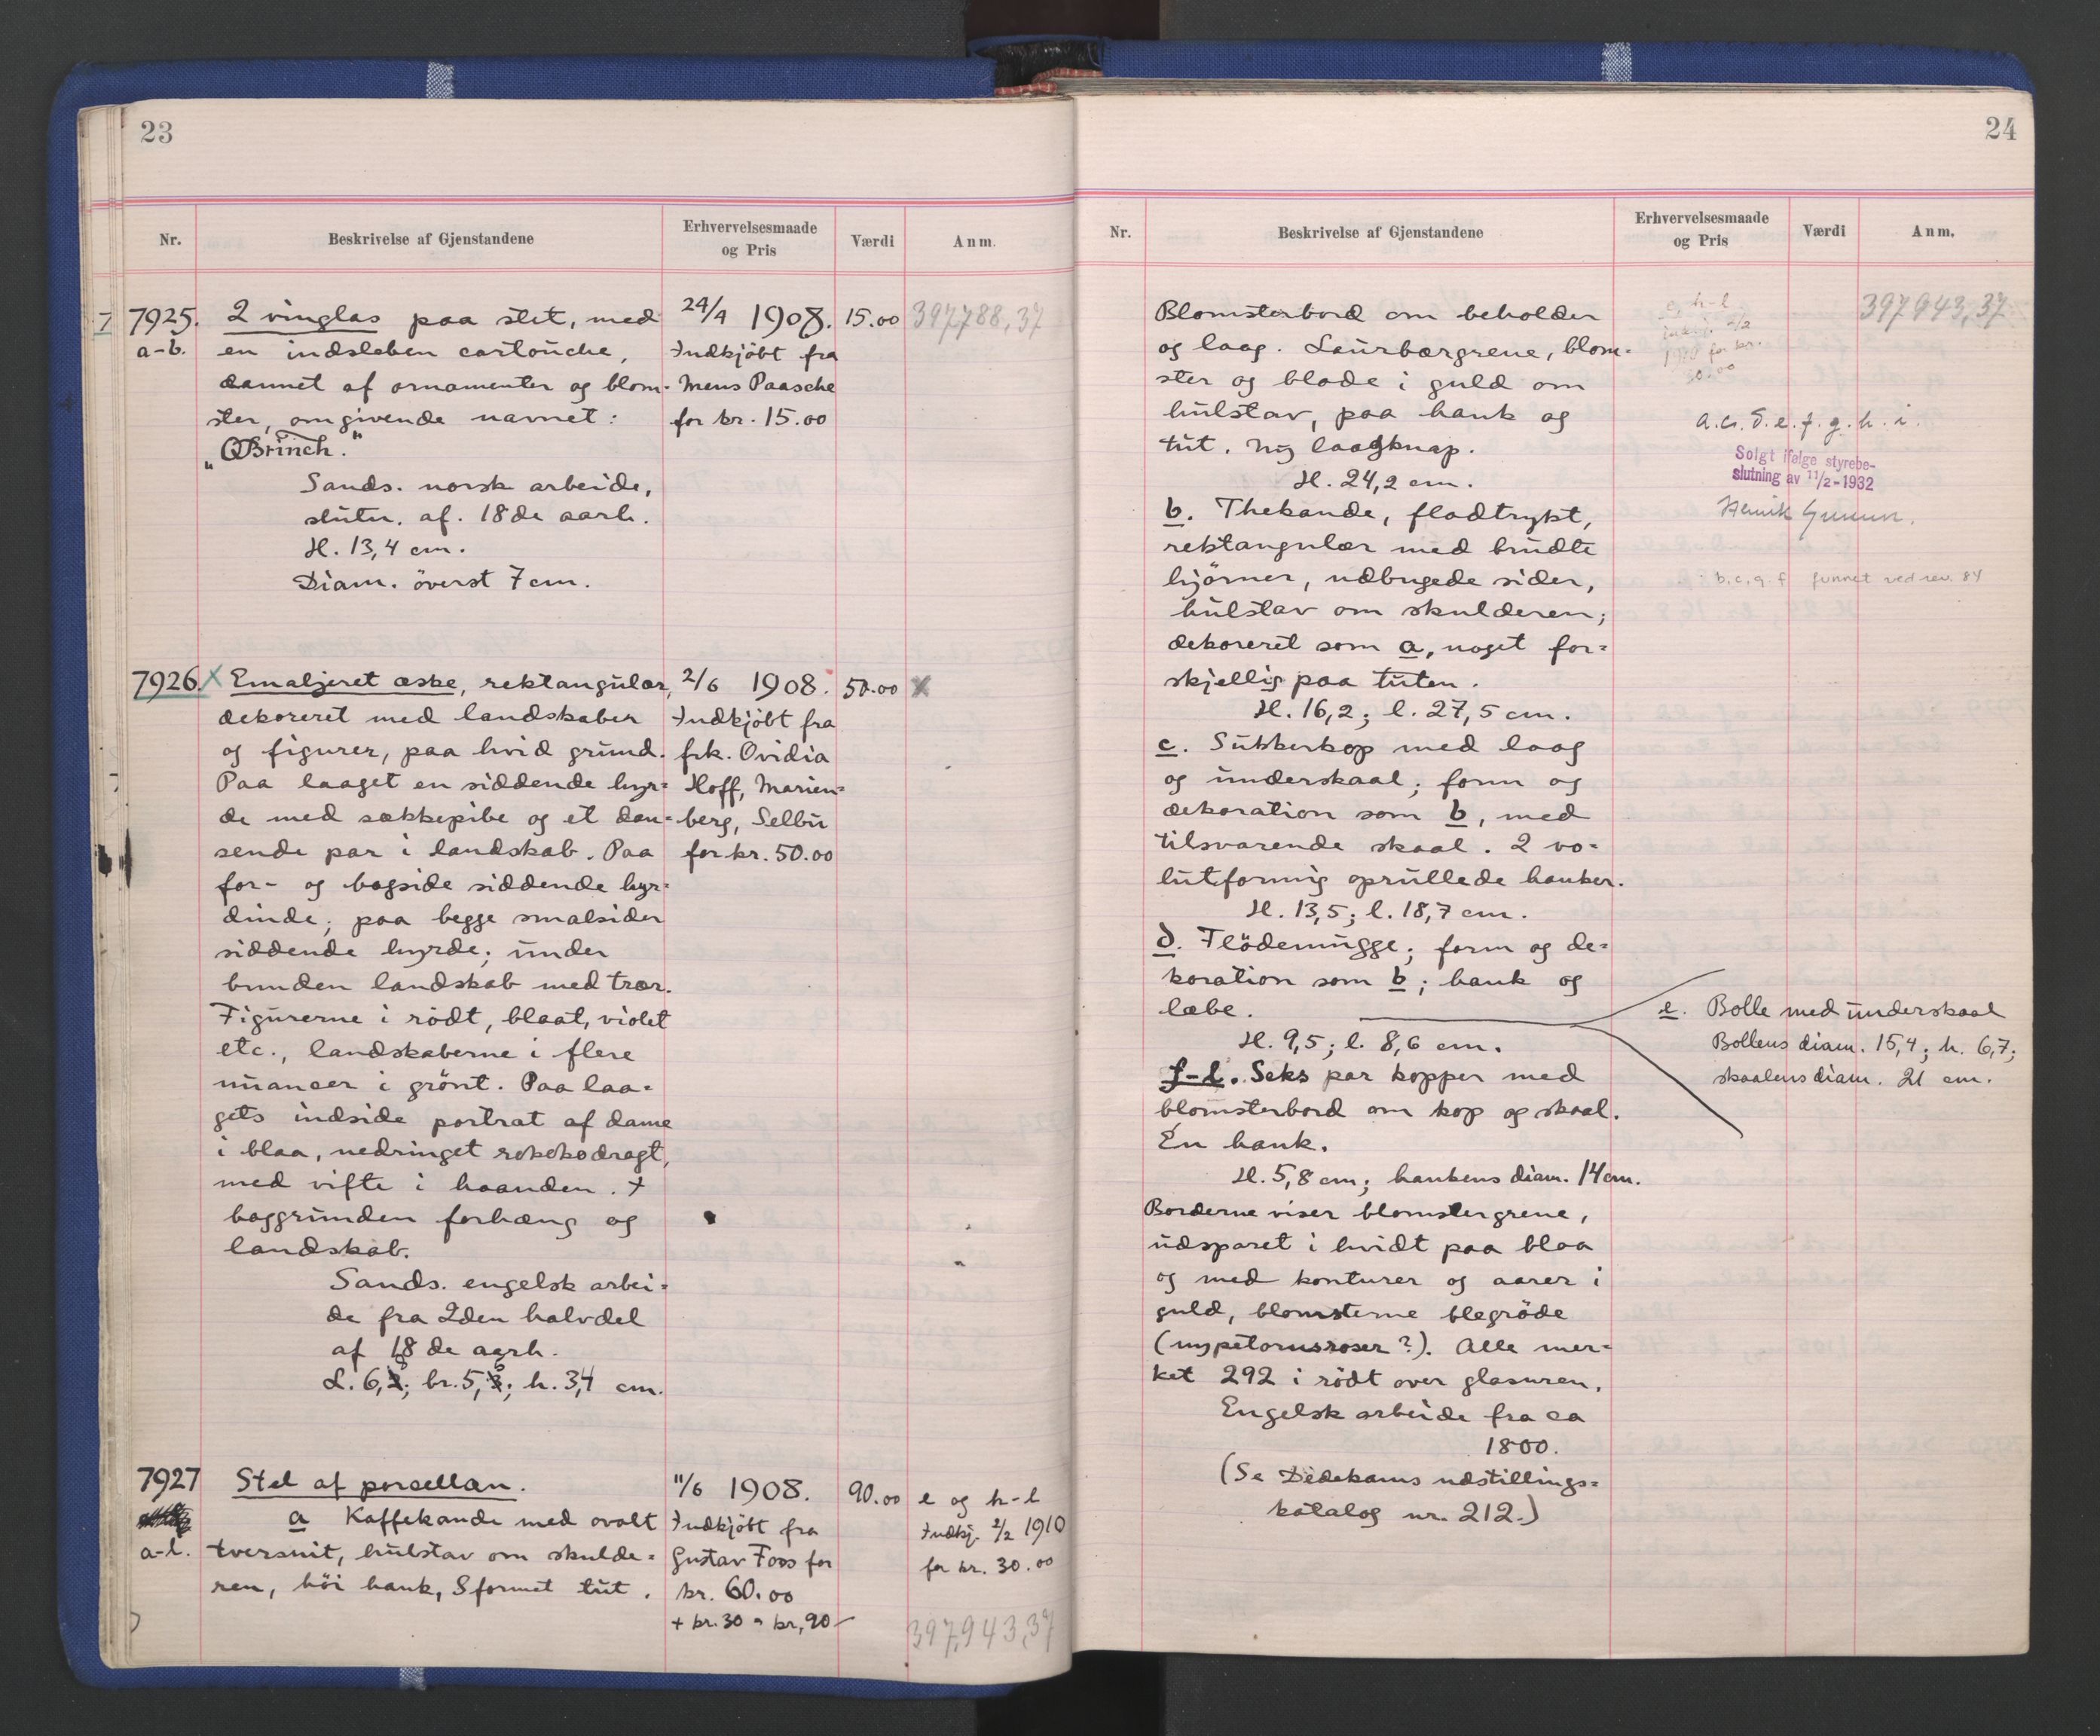 23
Nr.
Beskrivelse af Gjenstandene
Erhvervelsesmaade
og Pris
Værdi
Anm.
7925.
a-b.
2 vinglas paa stet, med
en indsleben cartouche,
dannet af ornamenter og blom=
ster, omgivende navnet:
"OBrinch."
Sands. norsk arbeide,
slutn. af. 18de aarh.
H. 13,4 cm.
Diam. överst 7 cm.
24/4 1908.
Indkjöbt fra
Mens Paasche
for kr. 15.00
15.00
397788,37
7926.
X
Emaljeret æske, rektangulær,
dekoreret med landskaber
og figurer, paa hvid grund.
Paa laaget en siddende hyr=
de med sækkepibe og et dan=
sende par i landskab. Paa
for- og bagside siddende hyr=
dinde; paa begge smalsider
siddende hyrde; under
bunden landskab med trær.
Figurerne i rödt, blaat, violet
etc., landskaberne i flere
nuancer i grönt. Paa laa=
gets indside portræt af dame
i blaa, nedringet rokokodragt,
med vifte i haanden. I
baggrunden forhæng og
landskab.
Sands. engelsk arbei=
de fra 2den halvdel
af 18de aarh.
L. 6, ; br. 5, ; h. 3,4 cm.
2/6 1908.
Indkjöbt fra
frk. Ovidia
Hoff, Marien=
berg, Selbu
for kr. 50.00
50.00
X
7927
a-l.
Stel af porcellæn.
a Kaffekande med ovalt
tversnit, hulstav om skulde=
ren, höi hank, S formet tut.
11/6 1908.
Indkjöbt fra
Gustav Foss for
kr. 60.00
+ kr. 30 = kr, 90-
90.00
e og h-l
Indkj. 2/2 1910
for kr. 30.00
397,943,37
24
Nr.
Beskrivelse af Gjenstandene
Erhvervelsesmaade
og Pris
Værdi
Anm.
Blomsterbord om beholder
og laag. Laurbærgrene, blom=
ster og blade i guld om
hulstav, paa hank og
tut. Ny laagknap.
H. 24,2 cm.
b. Thekande, fladtrykt,
rektangulær med brudte
hjörner, udbugede sider,
hulstav om skulderen;
dekoreret som a, noget for=
skjellig paa tuten.
H. 16,2; l. 27,5 cm.
c. Sukkerkop med laag
og underskaal; form og
dekoration som b, med
tilsvarende skaal. 2 vo=
lutformig oprullede hanker.
H. 13,5; l. 18,7 cm.
d. Flödemugge; form og de=
koration som b; hank og
læbe.
H. 9,5; l. 8,6 cm.
e. Bolle med underskaal
Bollens diam. 15,4; h. 6,7;
skaalens diam. 21 cm.
f-l. Seks par kopper med
blomsterbord om kop og skaal.
Én hank.
H. 5,8 cm; hankens diam. 14 cm.
Borderne viser blomstergrene,
udsparet i hvidt paa blaa
og med konturer og aarer i
guld, blomsterne blegröde
(nypetornsroser?). Alle mer=
ket 292 i rödt over glasuren.
Engelsk arbeide fra ca
1800.
(Se Dedekams udstillings=
katalog nr. 212.)
h-l
2/2
for kr.
30.00
397943,37
a.c.d.e.f.g.h.i.
Solgt ifølge styrebe-
slutning av 11/2-1932
Henrik
b.c.g.f funnet ved rev. 84